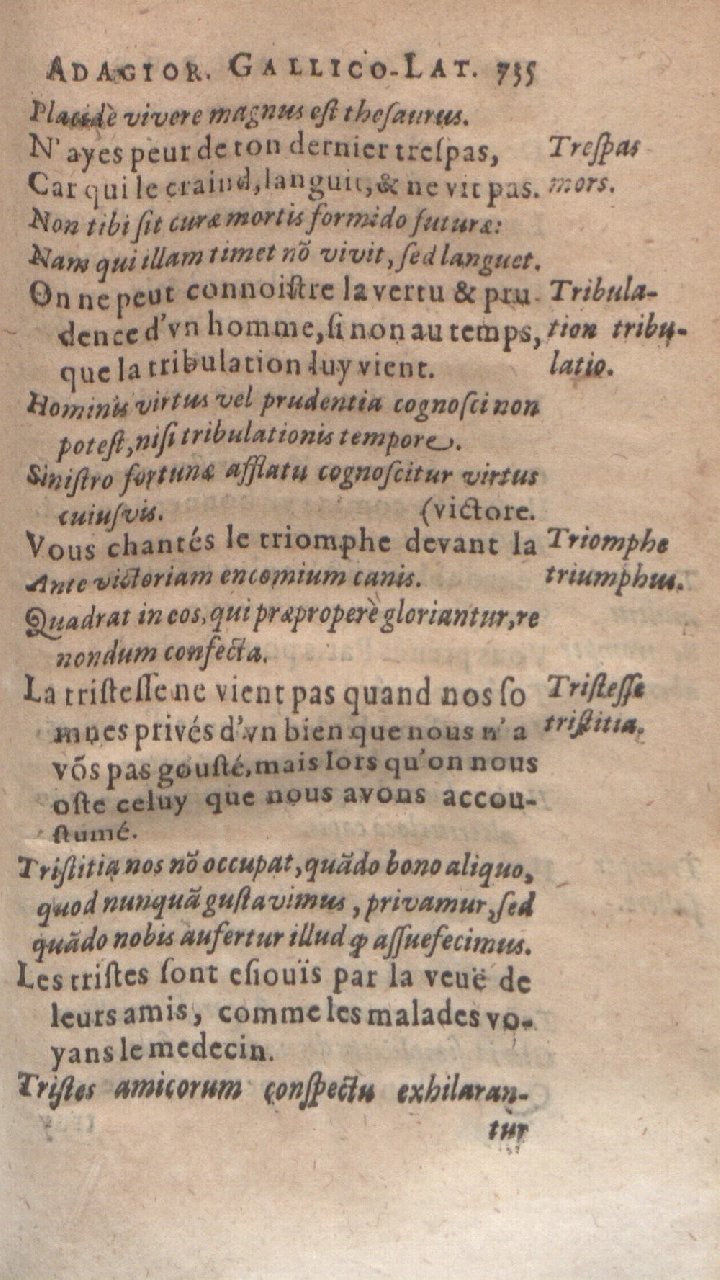 ADAGIOR. GALLICO-LAT. 735
Placidè vivere magnus est thesaurus.
N'ayes peur de ton dernier trespas, Trespas
Car qui le craind, languit, & ne vit pas. mors.
Non tibi sit curæ mortis formido futuræ:
Nam qui illam timet nõ vivit, sed languet.
On ne peut connoistre la vertu & pru- Tribula-
dence d'vn homme, si non au temps, tion tribu-
que la tribulation luy vient. latio.
Hominis virtus vel prudentia cognosci non
potest, nisi tribulationis tempore.
Sinistro fortunæ afflatu cognoscitur virtus
cuiusvis. (victore.
Vous chantés le triomphe devant la Triomphe
Ante victoriam encomium canis. triumphus.
Quadrat in eos, qui præproperè gloriantur, re
nondum confecta.
La tristesse ne vient pas quand nos so Tristesse
mnes privés d'vn bien que nous n'a tristitia.
võs pas gousté, mais lors qu'on nous
oste celuy que nous avons accou-
stumé.
Tristitia nos nõ occupat, quãdo bono aliquo,
quod nunquã gustavimus, privamur, sed
quãdo nobis aufertur illud ꝙ assuefecimus.
Les tristes sont esiouïs par la veuë de
leurs amis, comme les malades vo-
yans le medecin.
Tristes amicorum conspectu exhilaran-
tur